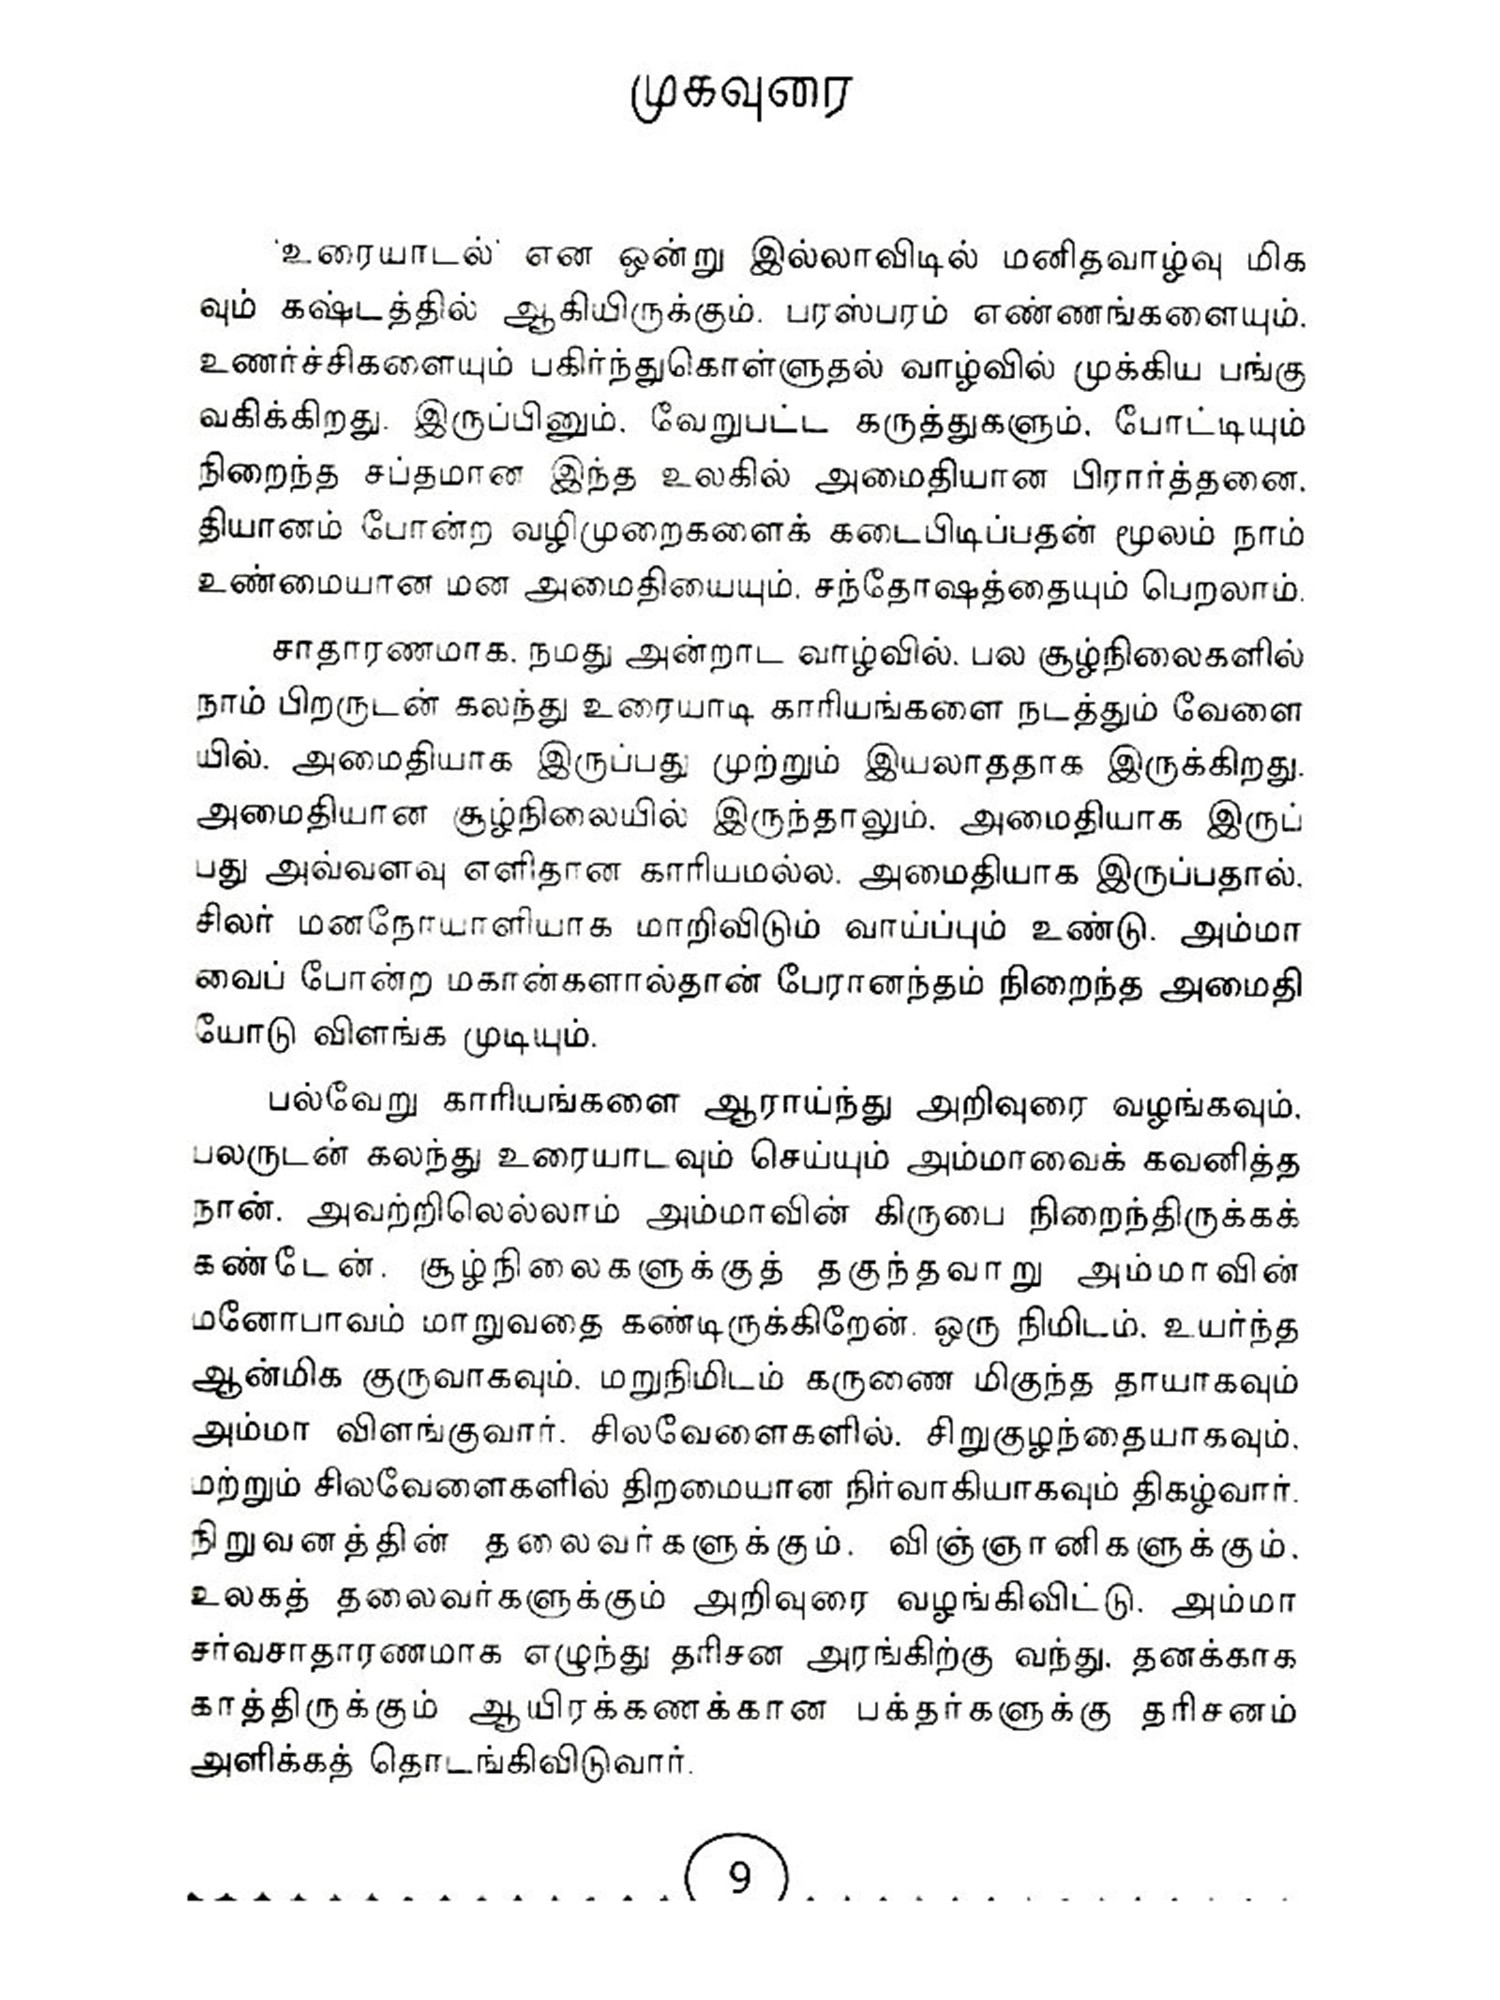 முகவுரை
'உரையாடல்' என ஒன்று இல்லாவிடில் மனிதவாழ்வு மிக
வும் கஷ்டத்தில் ஆகியிருக்கும். பரஸ்பரம் எண்ணங்களையும்,
உணர்ச்சிகளையும் பகிர்ந்துகொள்ளுதல் வாழ்வில் முக்கிய பங்கு
வகிக்கிறது. இருப்பினும், வேறுபட்ட கருத்துகளும், போட்டியும்
நிறைந்த சப்தமான இந்த உலகில் அமைதியான பிரார்த்தனை,
தியானம் போன்ற வழிமுறைகளைக் கடைபிடிப்பதன் மூலம் நாம்
உண்மையான மன அமைதியையும், சந்தோஷத்தையும் பெறலாம்.
சாதாரணமாக, நமது அன்றாட வாழ்வில், பல சூழ்நிலைகளில்
நாம் பிறருடன் கலந்து உரையாடி காரியங்களை நடத்தும் வேளை
யில், அமைதியாக இருப்பது முற்றும் இயலாததாக இருக்கிறது.
அமைதியான சூழ்நிலையில் இருந்தாலும், அமைதியாக இருப்
பது அவ்வளவு எளிதான காரியமல்ல. அமைதியாக இருப்பதால்,
சிலர் மனநோயாளியாக மாறிவிடும் வாய்ப்பும் உண்டு. அம்மா
வைப் போன்ற மகான்களால்தான் பேரானந்தம் நிறைந்த அமைதி
யோடு விளங்க முடியும்.
பல்வேறு காரியங்களை ஆராய்ந்து அறிவுரை வழங்கவும்,
பலருடன் கலந்து உரையாடவும் செய்யும் அம்மாவைக் கவனித்த
நான், அவற்றிலெல்லாம் அம்மாவின் கிருபை நிறைந்திருக்கக்
கண்டேன். சூழ்நிலைகளுக்குத் தகுந்தவாறு அம்மாவின்
மனோபாவம் மாறுவதை கண்டிருக்கிறேன். ஒரு நிமிடம், உயர்ந்த
ஆன்மிக குருவாகவும், மறுநிமிடம் கருணை மிகுந்த தாயாகவும்
அம்மா விளங்குவார். சிலவேளைகளில், சிறுகுழந்தையாகவும்,
மற்றும் சிலவேளைகளில் திறமையான நிர்வாகியாகவும் திகழ்வார்.
நிறுவனத்தின் தலைவர்களுக்கும், விஞ்ஞானிகளுக்கும்,
உலகத் தலைவர்களுக்கும் அறிவுரை வழங்கிவிட்டு, அம்மா
சர்வசாதாரணமாக எழுந்து தரிசன அரங்கிற்கு வந்து, தனக்காக
காத்திருக்கும் ஆயிரக்கணக்கான பக்தர்களுக்கு தரிசனம்
அளிக்கத் தொடங்கிவிடுவார்.
9